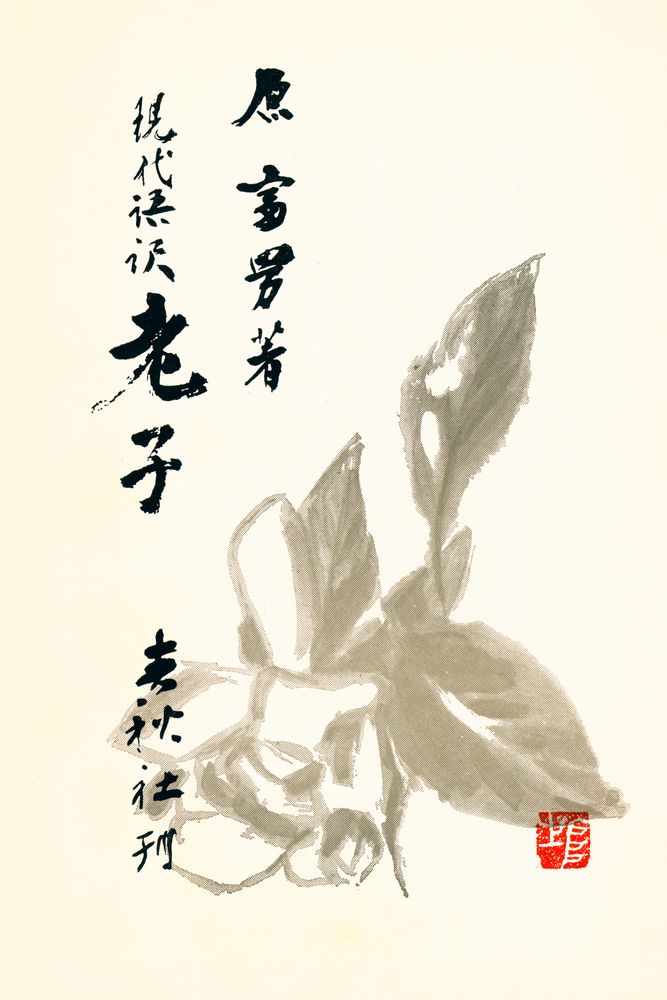 原富男著
現代語訳
老子
春秋社刊